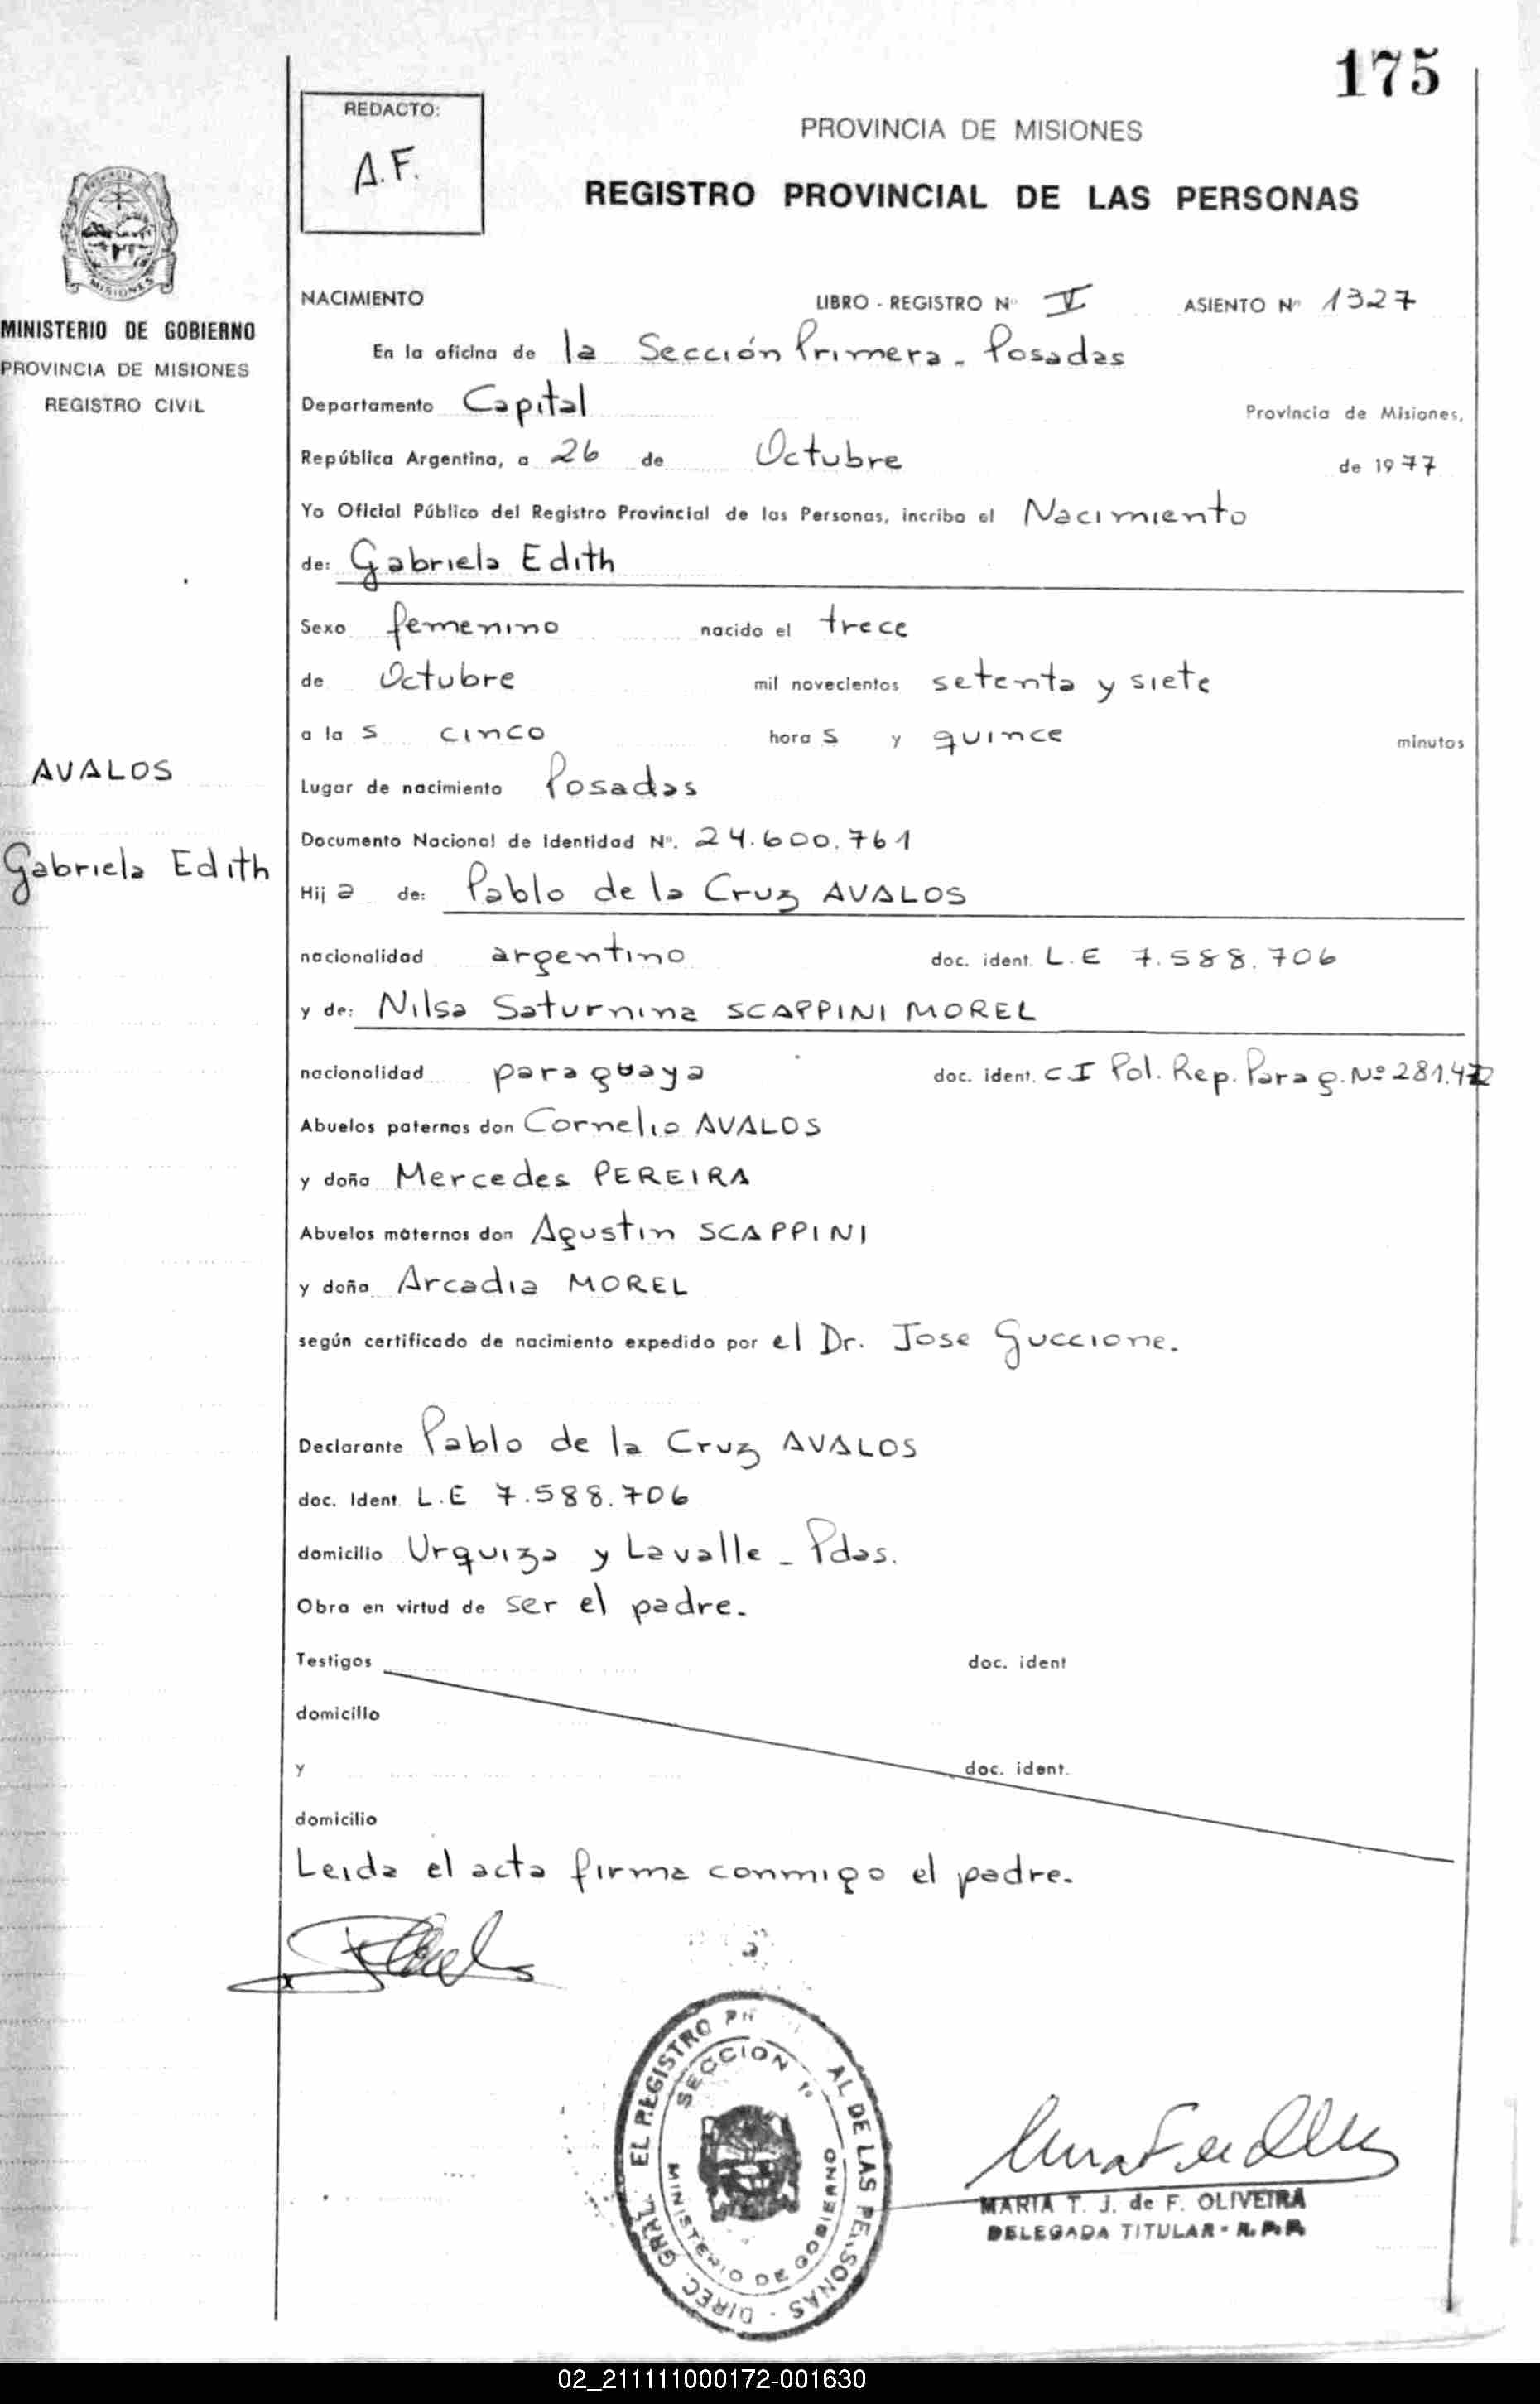 175
REDACTO:
A.F.
PROVINCIA DE MISIONES
REGISTRO PROVINCIAL DE LAS PERSONAS
MISIONES
MINISTERIO DE GOBIERNO
PROVINCIA DE MISIONES
REGISTRO CIVIL
NACIMIENTO LIBRO - REGISTRO Nº I ASIENTO Nº 1327
En la oficina de la Sección Primera - Posadas
Departamento Capital Provincia de Misiones,
República Argentina, a 26 de Octubre de 1977
Yo Oficial Público del Registro Provincial de las Personas, incribo el Nacimiento
de: Gabriela Edith
Sexo femenino nacido el trece
de Octubre mil novecientos setenta y siete
a la s cinco hora s y quince minutos
AVALOS
Gabriela Edith
Lugar de nacimiento Posadas
Documento Nacional de Identidad Nº. 24.600.761
Hij a de: Pablo de la Cruz AVALOS
nacionalidad argentino doc. ident. L.E 7.588.706
y de: Nilsa Saturnina SCAPPINI MOREL
nacionalidad paraguaya doc. ident. C I Pol. Rep. Parag. Nº
Abuelos paternos don Cornelio AVALOS
y doña Mercedes PEREIRA
Abuelos maternos don Agustin SCAPPINI
y doña Arcadia MOREL
según certificado de nacimiento expedido por el Dr. Jose Guccione.
Declarante Pablo de la Cruz AVALOS
doc. Ident. L.E 7.588.706
domicilio Urquiza y Lavalle - Pdas.
Obra en virtud de ser el padre.
Testigos doc. ident
domicilio
y doc. ident.
domicilio
Leida el acta firma conmigo el padre.
DIREC. GRAL. EL REGISTRO AL DE LAS PERSONAS
SECCION 1ª
MINISTERIO DE GOBIERNO
MARIA T. J. de F. OLIVEIRA
DELEGADA TITULAR - R. P. P.
02_211111000172-001630